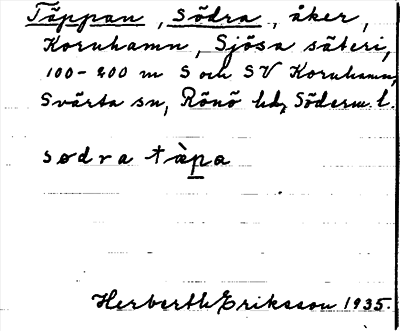 Täppan, Södra, åker,
Kornhamn, Sjösa säteri,
100-200 m S och SV Kornhamn,
Svärta sn, Rönö hd, Söderm. l.
sødra tàpa
Herberth Eriksson 1935.